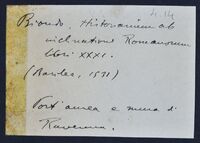 4.14
Biondo Historiarum ab
inclinatione Romanorum
libri XXXI.
(Basilea, 1531)
Port aurea e mura di
Ravenna.